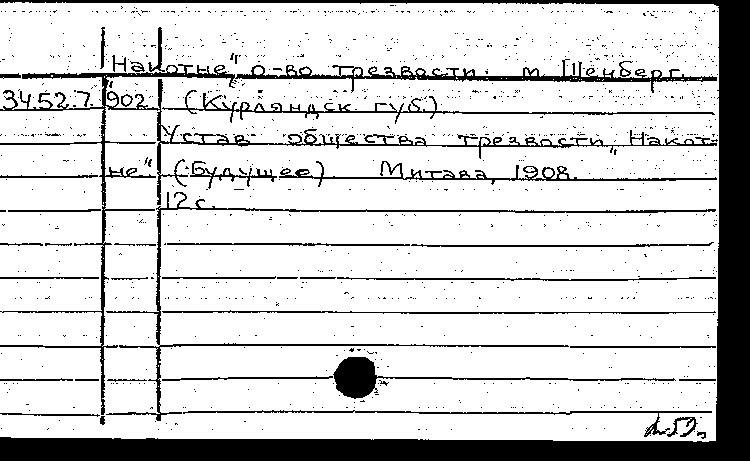 „Накотне" о-во трезвости. м. Шенберг.
34.52.7 902 (Курляндск. губ.)
Устав общества трезвости „Накот-
не" (Будущее) Митава, 1908.
12 с.